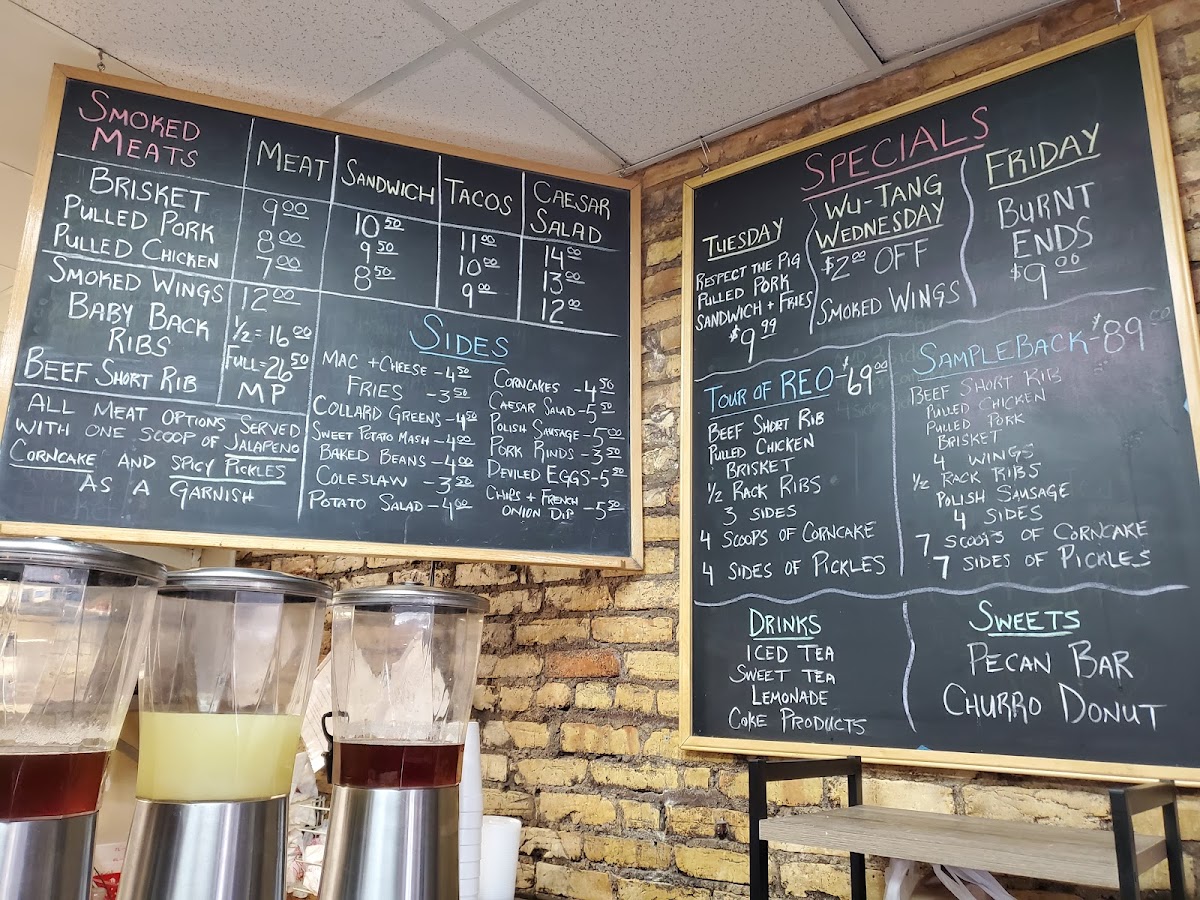 SMOKED MEATS MEAT SANDWICH TACOS CAESAR SALAD
BRISKET 9.00 10.50 11.00 14.00
PULLED PORK 8.00 9.50 10.00 13.00
PULLED CHICKEN 7.00 8.50 9.00 12.00
SMOKED WINGS 12.00
BABY BACK RIBS 1/2 = 16.00
FULL = 26.50
BEEF SHORT RIB MP
ALL MEAT OPTIONS SERVED
WITH ONE SCOOP OF JALAPENO
CORNCAKE AND SPICY PICKLES
AS A GARNISH
SIDES
MAC + CHEESE - 4.50
FRIES - 3.50
COLLARD GREENS - 4.50
SWEET POTATO MASH - 4.00
BAKED BEANS - 4.00
COLESLAW - 3.50
POTATO SALAD - 4.00
CORNCAKES - 4.50
CAESAR SALAD - 5.50
POLISH SAUSAGE - 5.00
PORK RINDS - 3.50
DEVILED EGGS - 5.50
CHIPS + FRENCH
ONION DIP - 5.50
SPECIALS
TUESDAY
RESPECT THE PIG
PULLED PORK
SANDWICH + FRIES
$9.99
WU-TANG
WEDNESDAY
$2.00 OFF
SMOKED WINGS
FRIDAY
BURNT
ENDS
$9.00
TOUR OF REO - $69.00
BEEF SHORT RIB
PULLED CHICKEN
BRISKET
1/2 RACK RIBS
3 SIDES
4 SCOOPS OF CORNCAKE
4 SIDES OF PICKLES
SAMPLEBACK - $89.00
BEEF SHORT RIB
PULLED CHICKEN
PULLED PORK
BRISKET
4 WINGS
1/2 RACK RIBS
POLISH SAUSAGE
4 SIDES
7 SCOOPS OF CORNCAKE
7 SIDES OF PICKLES
DRINKS
ICED TEA
SWEET TEA
LEMONADE
COKE PRODUCTS
SWEETS
PECAN BAR
CHURRO DONUT